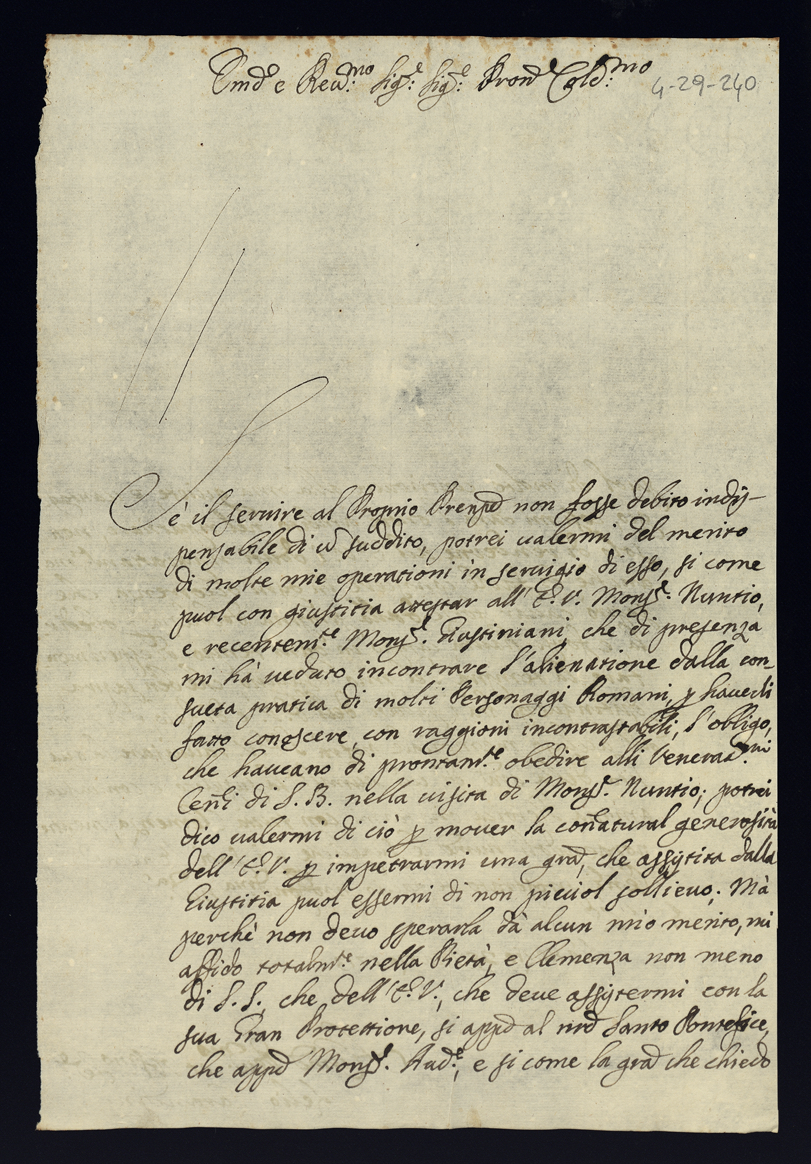 Em.o e Reu.mo Sig.e Sig.e Pron.e Col.mo
4-29-240
Sè il seruire al Proprio Prenpe non fosse debito indis-
pensabile di un suddito, potrei ualermi del merito
di molte mie operationi in seruigio di esso, si come
puol con giustitia attestar all'E.V. Mons.r Nuntio,
e recentem.te Mons.r Giustiniani, che di presenza
mi hà ueduto incontrare l'alienatione dalla con-
sueta pratica di molti Personaggi Romani, p hauerli
fatto conoscere, con raggioni incontrastabili, l'obligo,
che haueano di prontam.te obedire alli Venerad.mi
Cenni di S. B. nella uisita di Mons.r Nuntio; potrei
dico ualermi di ciò p mouer la connatural generosità
dell'E.V. p impetrarmi una gra, che assistita dalla
Giustitia puol essermi di non picciol sollieuo. Mà
perchè non deuo sperarla dà alcun mio merito, mi
affido totalm.te nella Pietà, e Clemenza non meno
di S. S., che dell'E.V., che deue assistermi con la
sua Gran Protettione, si appo al nro Santo Pontefice,
che appo Mons.r Aud.e, e si come la gra che chiedo